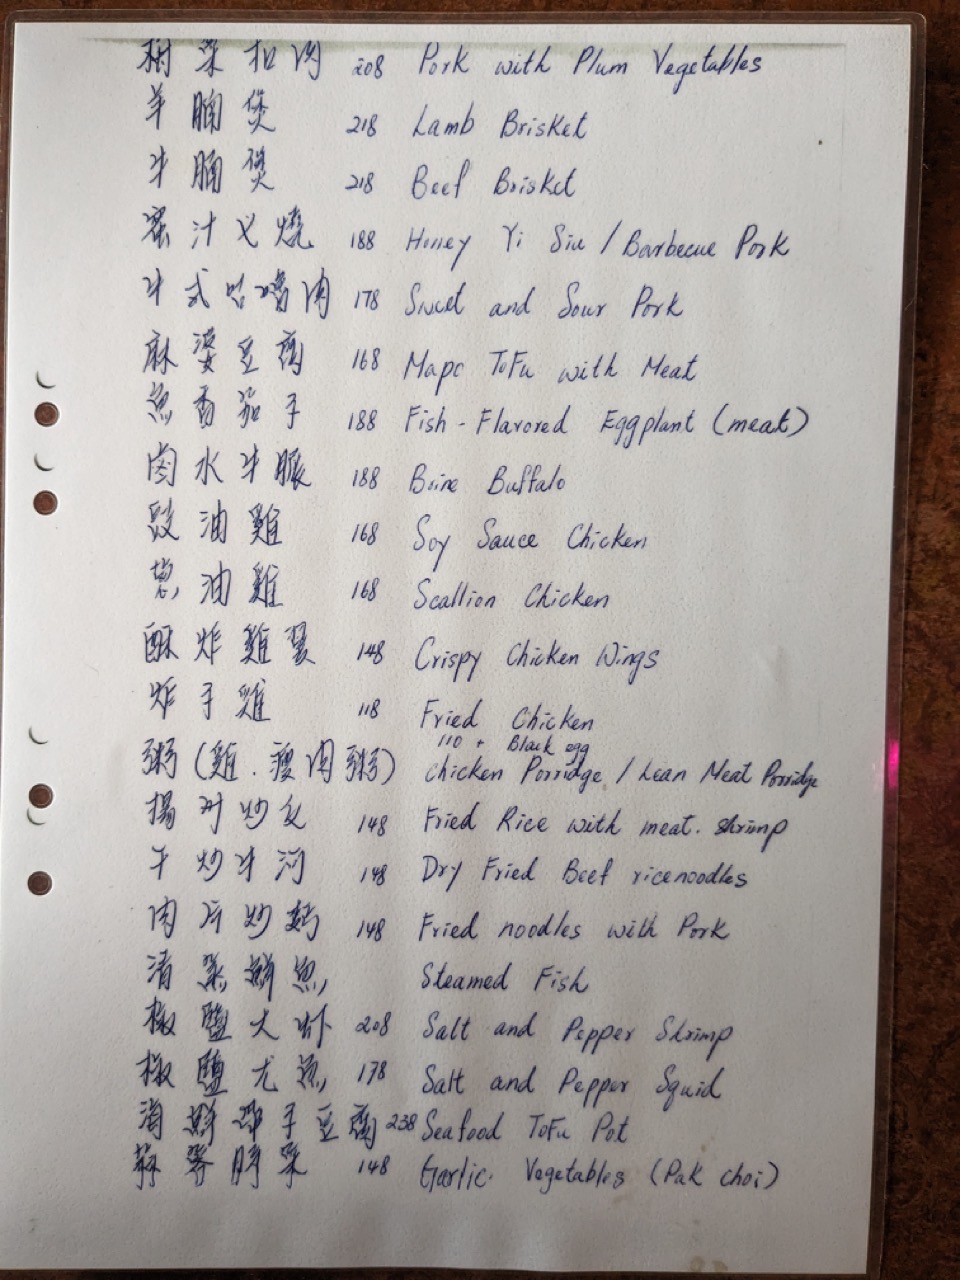 梅菜扣肉 208 Pork with Plum Vegetables
羊腩煲 218 Lamb Brisket
牛腩煲 218 Beef Brisket
蜜汁义燒 188 Honey Yi Siu / Barbecue Pork
式咕嚕肉 178 Sweet and Sour Pork
麻婆豆腐 168 Mapo ToFu with Meat
魚香茄子 188 Fish - Flavored Eggplant (meat)
卤水牛腱 188 Brine Buffalo
豉油雞 168 Soy Sauce Chicken
葱油雞 168 Scallion Chicken
酥炸雞翼 148 Crispy Chicken Wings
炸子雞 118 Fried Chicken
110 + Black egg
粥 (雞.瘦肉粥) Chicken Porridge / Lean Meat Porridge
揚州炒反 148 Fried Rice with meat. shrimp
干炒牛河 148 Dry Fried Beef ricenoodles
肉片炒麵 148 Fried noodles with Pork
清蒸鲜魚 Steamed Fish
椒鹽大虾 208 Salt and Pepper Shrimp
椒鹽尤魚 178 Salt and Pepper Squid
海鲜豆腐 238 Seafood ToFu Pot
蒜蓉時菜 148 Garlic. Vegetables (Pak choi)